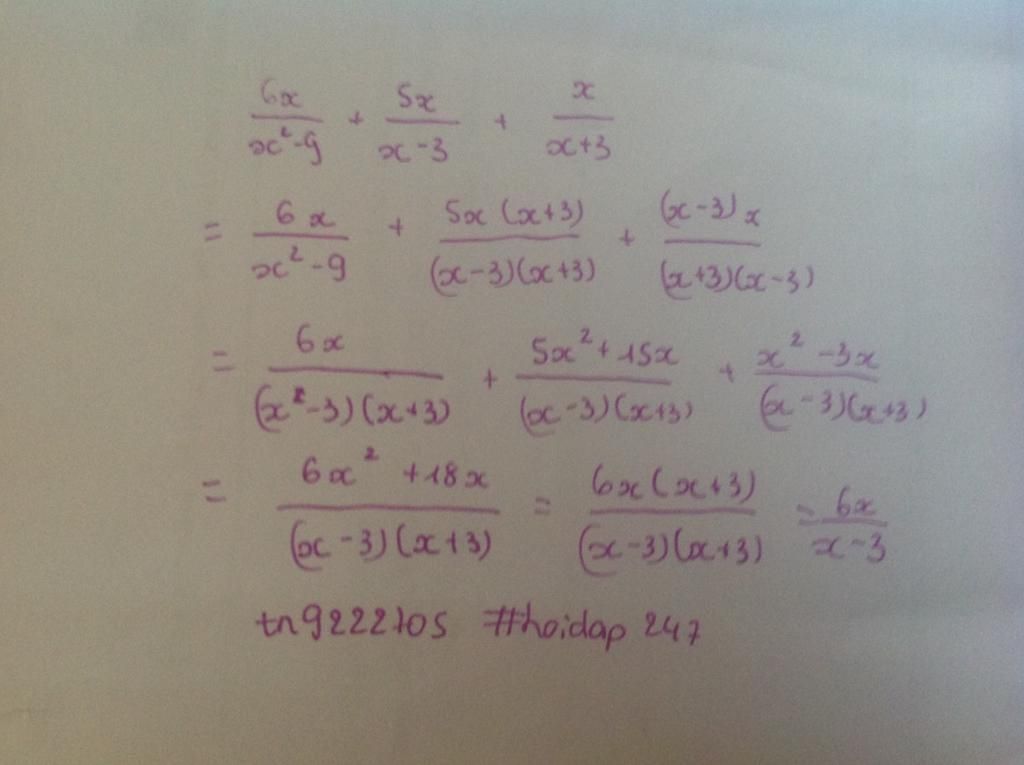 6x/(x²-9) + 5x/(x-3) + x/(x+3)
= 6x/(x²-9) + 5x(x+3)/((x-3)(x+3)) + (x-3)x/((x+3)(x-3))
= 6x/((x²-3)(x+3)) + (5x²+15x)/((x-3)(x+3)) + (x²-3x)/((x-3)(x+3))
= (6x²+18x)/((x-3)(x+3)) = 6x(x+3)/((x-3)(x+3)) = 6x/(x-3)
tn9222705 #hoidap 247